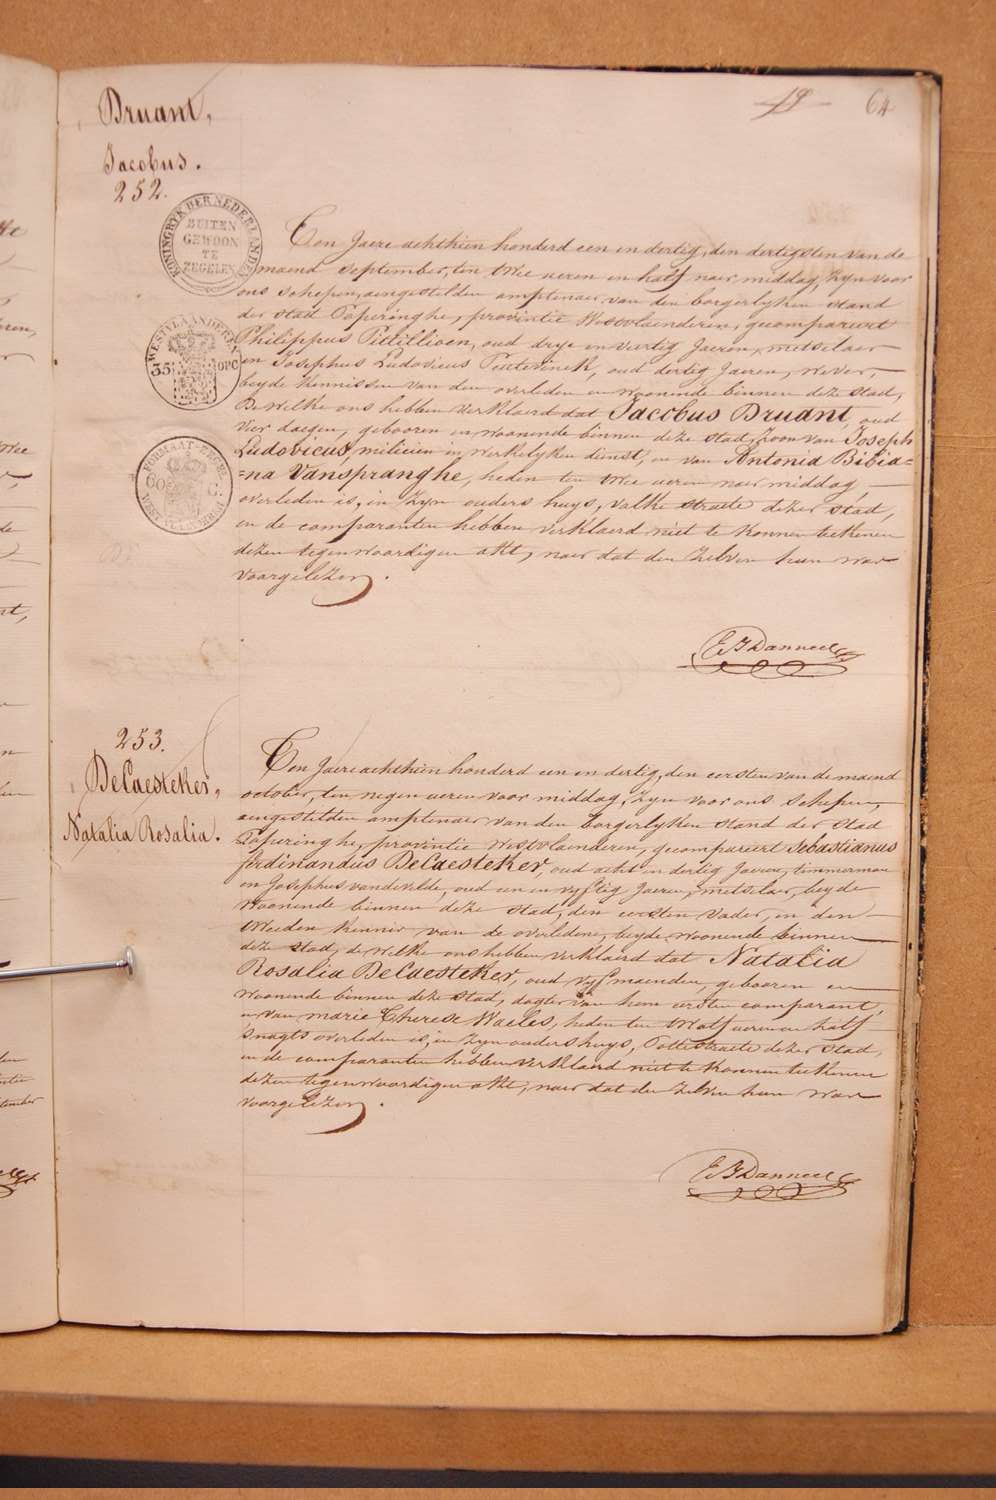 19 64
Druant,
Jacobus.
252.
KONINGRYK DER NEDERLANDEN
BUITEN
GEWOON
TE
ZEGELEN
WESTVLAANDEREN
35 OPC
FORMAAT-ZEGEL
60 C:
WEST-VLAANDEREN
Ten Jaere achthien honderd een en dertig, den dertigsten van de
maend september, ten twee ueren en half naer middag, Zyn voor
ons schepen, aengestelden amptenaer van den borgerlyken stand
der stad Poperinghe, provintie Westvlaenderen, gecompareert
Philippus Pittillioen, oud drye en veertig Jaeren, metselaer
en Josephus Ludovicus, oud dertig Jaeren, wever,
beyde kennissen van den overleden en woonende binnen deze stad,
De welke ons hebben verklaerd dat Jacobus Druant, oud
vier daegen, gebooren en woonende binnen deze stad, Zoon van Joseph
Ludovicus, milicien in werkelyken dienst, en van Antonia Bibia=
=na Vanspranghe, heden ten twee ueren naer middag
overleden is, in Zyn ouders huys, Valke straete dezer stad,
en de comparanten hebben verklaerd niet te konnen teekenen
dezen tegenwoordigen akt, naer dat den Zelven hun war
voorgelezen.
E J Danneel
253.
DeCaesteker,
Natalia Rosalia.
Ten Jaere achthien honderd een en dertig, den eersten van de maend
october, ten negen ueren voor middag, Zyn voor ons schepen,
aengestelden amptenaer van den borgerlyken stand der stad
Poperinghe, provintie Westvlaenderen, gecompareert Sebastianus
ferdinandus DeCaesteker, oud acht en dertig Jaeren, timmerman
en Josephus vandevelde, oud een en vyftig Jaeren, metselaer, beyde
woonende binnen deze stad, den eersten vader, en den
tweeden kennis van de overledene, beyde woonende binnen
deze stad, de welke ons hebben verklaerd dat Natalia
Rosalia DeCaesteker, oud vyf maenden, gebooren en
woonende binnen deze stad, dogter van hem eersten comparant,
en van marie Therese Waeles, heden ten twalf ueren en half
'snagts overleden is, in Zyn ouders huys, Potte straete dezer stad,
en de comparanten hebben verklaerd niet te konnen teekenen
dezen tegenwoordigen akt, naer dat den Zelven hun war
voorgelezen.
E J Danneel